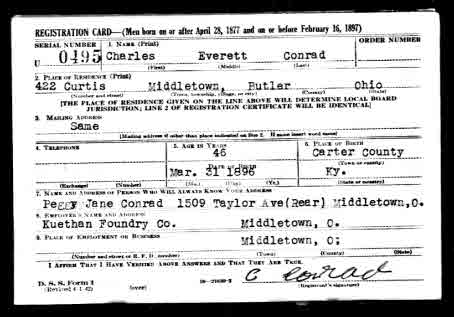 REGISTRATION CARD—(Men born on or after April 28, 1877 and on or before February 16, 1897)
SERIAL NUMBER 1. NAME (Print) ORDER NUMBER
U 0495 Charles Everett Conrad
(First) (Middle) (Last)
2. PLACE OF RESIDENCE (Print)
422 Curtis Middletown, Butler Ohio
(Number and street) (Town, township, village, or city) (County) (State)
[THE PLACE OF RESIDENCE GIVEN ON THE LINE ABOVE WILL DETERMINE LOCAL BOARD
JURISDICTION; LINE 2 OF REGISTRATION CERTIFICATE WILL BE IDENTICAL]
3. MAILING ADDRESS
Same
[Mailing address if other than place indicated on line 2. If same insert word same]
4. TELEPHONE 5. AGE IN YEARS 6. PLACE OF BIRTH
46 Carter County
DATE OF BIRTH (Town or county)
Mar. 31 1896 Ky.
(Exchange) (Number) (Mo.) (Day) (Yr.) (State or country)
7. NAME AND ADDRESS OF PERSON WHO WILL ALWAYS KNOW YOUR ADDRESS
Peggy Jane Conrad 1509 Taylor Ave(Rear) Middletown,O.
8. EMPLOYER'S NAME AND ADDRESS
Kuethan Foundry Co. Middletown, O.
9. PLACE OF EMPLOYMENT OR BUSINESS
Middletown, O;
(Number and street or R. F. D. number) (Town) (County) (State)
I AFFIRM THAT I HAVE VERIFIED ABOVE ANSWERS AND THAT THEY ARE TRUE.
C Conrad
D. S. S. Form 1
(Revised 4-1-42) (over) (Registrant's signature)